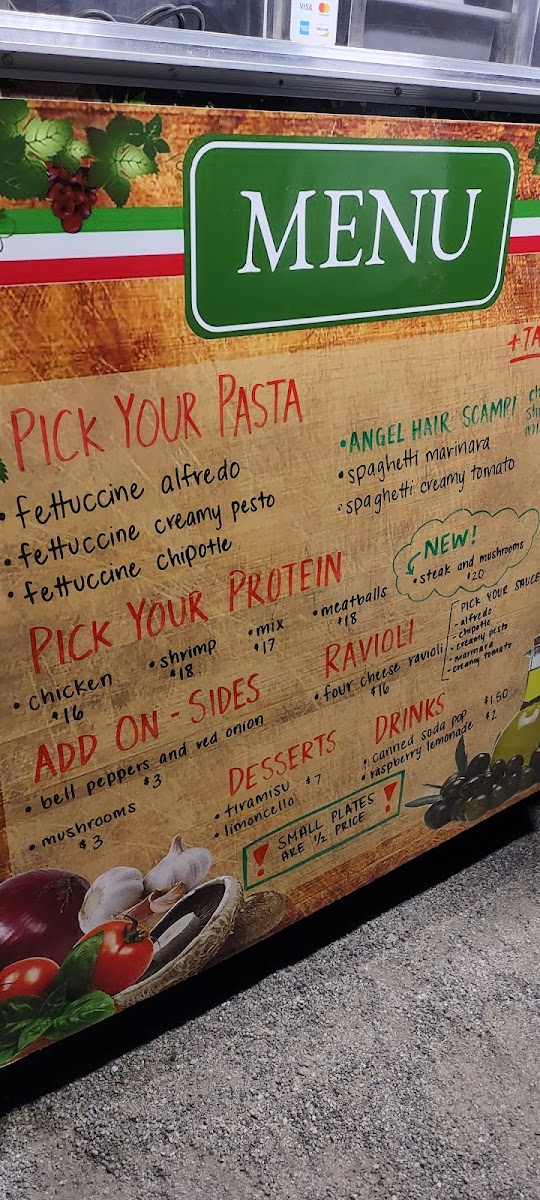 VISA
MENU
+TA
PICK YOUR PASTA
• fettuccine alfredo
• fettuccine creamy pesto
• fettuccine chipotle
• ANGEL HAIR SCAMPI
• spaghetti marinara
• spaghetti creamy tomato
NEW!
• steak and mushrooms
$20
PICK YOUR PROTEIN
• chicken
$16
• shrimp
$18
• mix
$17
• meatballs
$18
RAVIOLI
• four cheese ravioli
$16
PICK YOUR SAUCE
- alfredo
- chipotle
- creamy pesto
- marinara
- creamy tomato
ADD ON - SIDES
• bell peppers and red onion
$3
• mushrooms
$3
DESSERTS
• tiramisu
• limoncello $7
DRINKS
• canned soda pop $1.50
• raspberry lemonade $2
! SMALL PLATES !
ARE 1/2 PRICE